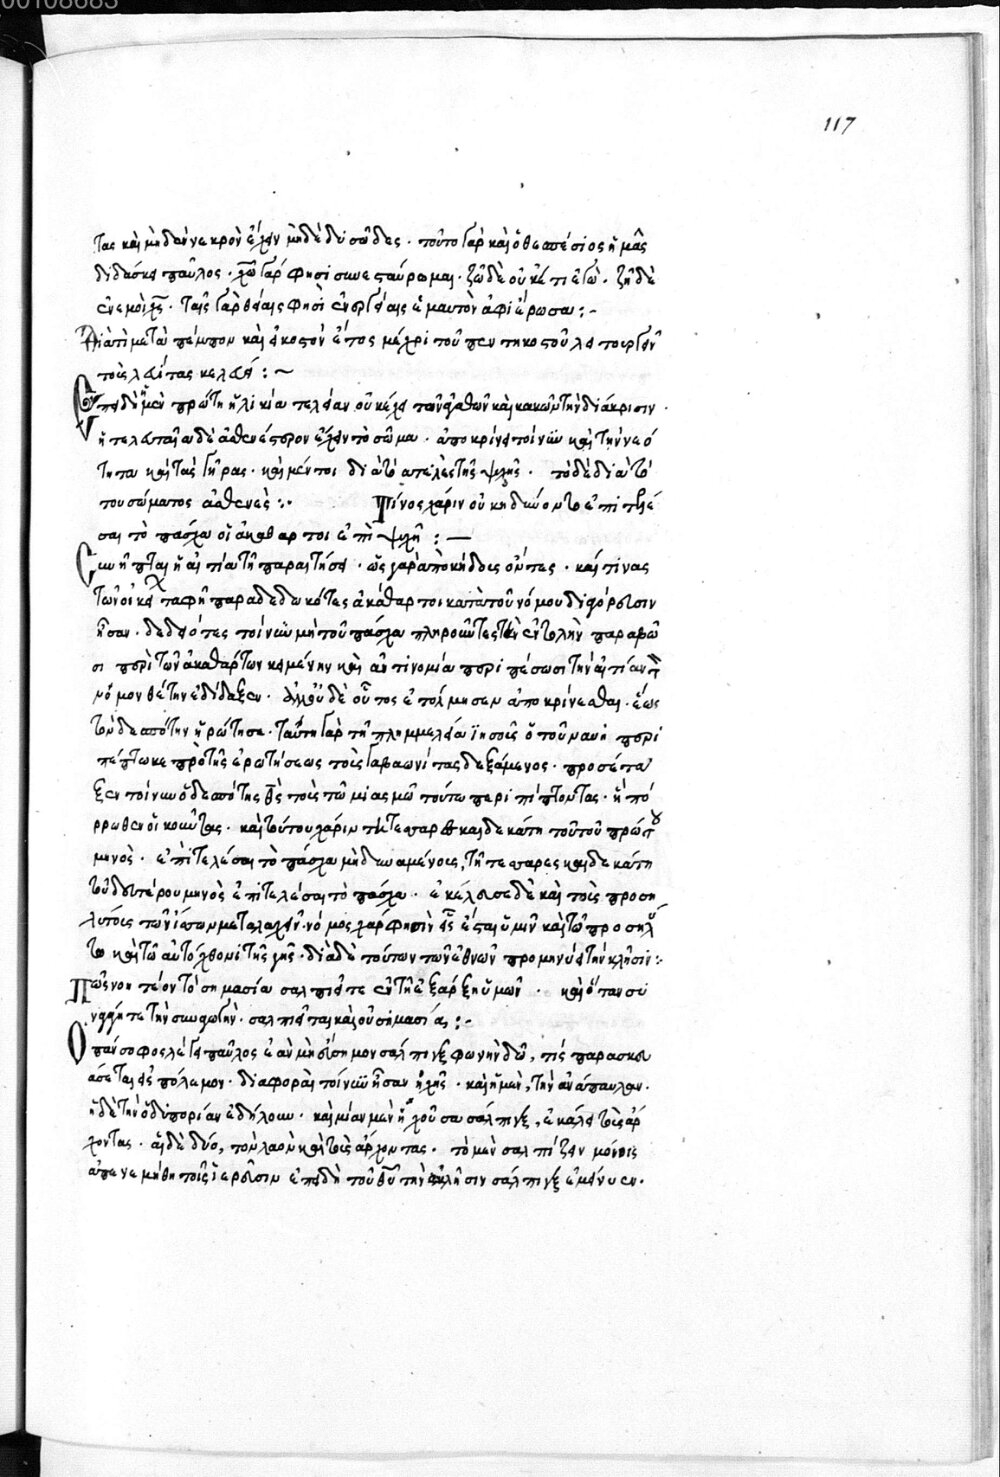 117
τας καὶ μηδὲν νεκρὸν ἔχειν μηδὲ δυσῶδες. τοῦτο γὰρ καὶ ὁ θεσπέσιος ἡμᾶς
διδάσκει παῦλος. χῶ γάρ φησι συνεσταύρωμαι. ζῶ δὲ οὐκέτι ἐγώ. ζῆ δὲ
ἐν ἐμοὶ χς. ταῖς γὰρ θείαις φησὶν ἐντολαῖς ἐμαυτὸν ἀφιέρωσα:-
Διατί μετὰ πέμπτον καὶ εἰκοστὸν ἔτος μέχρι τοῦ πεντηκοστοῦ λειτουργεῖν
τοὺς λευίτας κελεύει:~
Ἐπειδὴ ἡ μὲν πρώτη ἡλικία τελείαν οὐκ ἔχει τῶν ἀγαθῶν καὶ κακῶν τὴν διάκρισιν.
ἡ τελευταία δὲ ἀσθενέστερον ἔχει τὸ σῶμα. ἀποκρίνει τοίνυν καὶ τὴν νεό
τητα καὶ τὸ γῆρας. καὶ μέντοι διὰ τὸ ἀτελὲς τῆς ψυχῆς. τὸ δὲ διὰ τὸ
τοῦ σώματος ἀσθενές:· Τίνος χάριν οὐκ ἠδύναντο ἐπιτελέ
σαι τὸ πάσχα οἱ ἀκάθαρτοι ἐπὶ ψυχῇ:—
Συνῆπται ἡ αἰτία τῇ παραιτήσει. ὡς γὰρ ἀποκηδεις ὄντες. καί τινας
τῶν οἰκείων ταφῇ παραδεδωκότες ἀκάθαρτοι κατὰ τοῦ νόμου διαγόρευσιν
ἦσαν. δεδιότες τοίνυν μὴ τοῦ πάσχα πληροῦντες τὴν ἐντολὴν παραβῶ
σι περὶ τῶν ἀκαθάρτων κειμένην καὶ ἀντινομία περιπέσωσι τὴν αἰτίαν τὸν
νομοθέτην ἐδίδαξαν. ἀλλ' οὐδὲ οὗτος ἐτόλμησεν ἀποκρίνεσθαι. ἕως
τὸν δεσπότην ἠρώτησε. ταύτη γὰρ τῇ πλημμελείᾳ ἰησοῦς ὁ τοῦ ναυῆ περι
πέπτωκε πρὸ τῆς ἐρωτήσεως τοὺς γαβαωνίτας δεξάμενος. προσέτα
ξεν τοίνυν ὁ δεσπότης θς τοὺς τῶ μιασμῶ τούτω περιπίπτοντας. ἢ πό
ρρωθεν οἰκοῦντας. καὶ τούτου χάριν τῇ τεσσαρεσκαιδεκάτη τοῦ τοῦ πρώτου
μηνὸς. ἐπιτελέσαι τὸ πάσχα μὴ δυναμένους, τῇ τεσσαρεσκαιδεκάτη
τοῦ δευτέρου μηνὸς ἐπιτελέσαι τὸ πάσχα. ἐκέλευσε δὲ καὶ τοὺς προση
λύτους τῶν ἴσων μεταλαχεῖν. νόμος γάρ φησιν εἷς ἔσται ὑμῖν καὶ τῶ προσηλύ
τω καὶ τῶ αὐτόχθονι τῆς γῆς. διὰ δὲ τούτων τῶν ἐθνῶν προμηνύει τὴν κλῆσιν:·
Πῶς νοητέον τὸ σημασία σαλπιεῖτε ἐν τῇ ἐξάρξει ὑμῶν. καὶ ὅταν συ
νάγητε τὴν συναγωγὴν. σαλπιεῖτε καὶ οὐ σημασία:-
Ὁ πάνσοφος λέγει παῦλος ἐὰν μὴ εὔσημον σάλπιγξ φωνὴν δῶ, τίς παρασκευ
άσεται εἰς πόλεμον. διαφοραὶ τοίνυν ἦσαν ἤχης. καὶ ἡ μὲν, τὴν ἀνάπαυλαν.
ἡ δὲ τὴν ὁδοιπορίαν ἐδήλου. καὶ μία μὲν ἠχοῦσα σάλπιγξ, ἐκάλει τοὺς ἄρ
χοντας. αἱ δὲ δύο, τὸν λαὸν καὶ τοὺς ἄρχοντας. τὸ μὲν σαλπίζειν μόνοις
ἀπενεμήθη τοῖς ἱερεῦσιν ἐπειδὴ τοῦ θῦ τὴν κλῆσιν σάλπιγξ ἐμήνυεν.